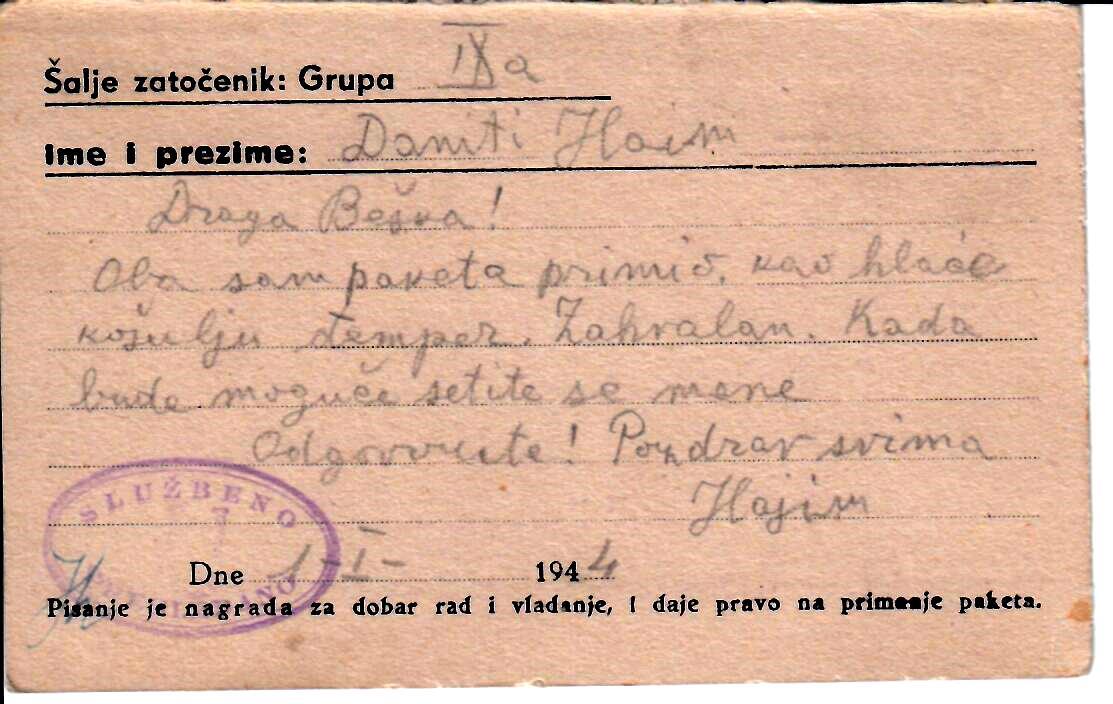 Šalje zatočenik: Grupa IXa
Ime i prezime: Daniti Haim
Draga Beška!
Oba sam paketa primio, kao hlače
košulju đemper. Zahvalan. Kada
bude moguće setite se mene
Odgovorite! Pozdrav svima
Hajim
SLUŽBENO
Dne 1-I- 1944
Pisanje je nagrada za dobar rad i vladanje, i daje pravo na primanje paketa.